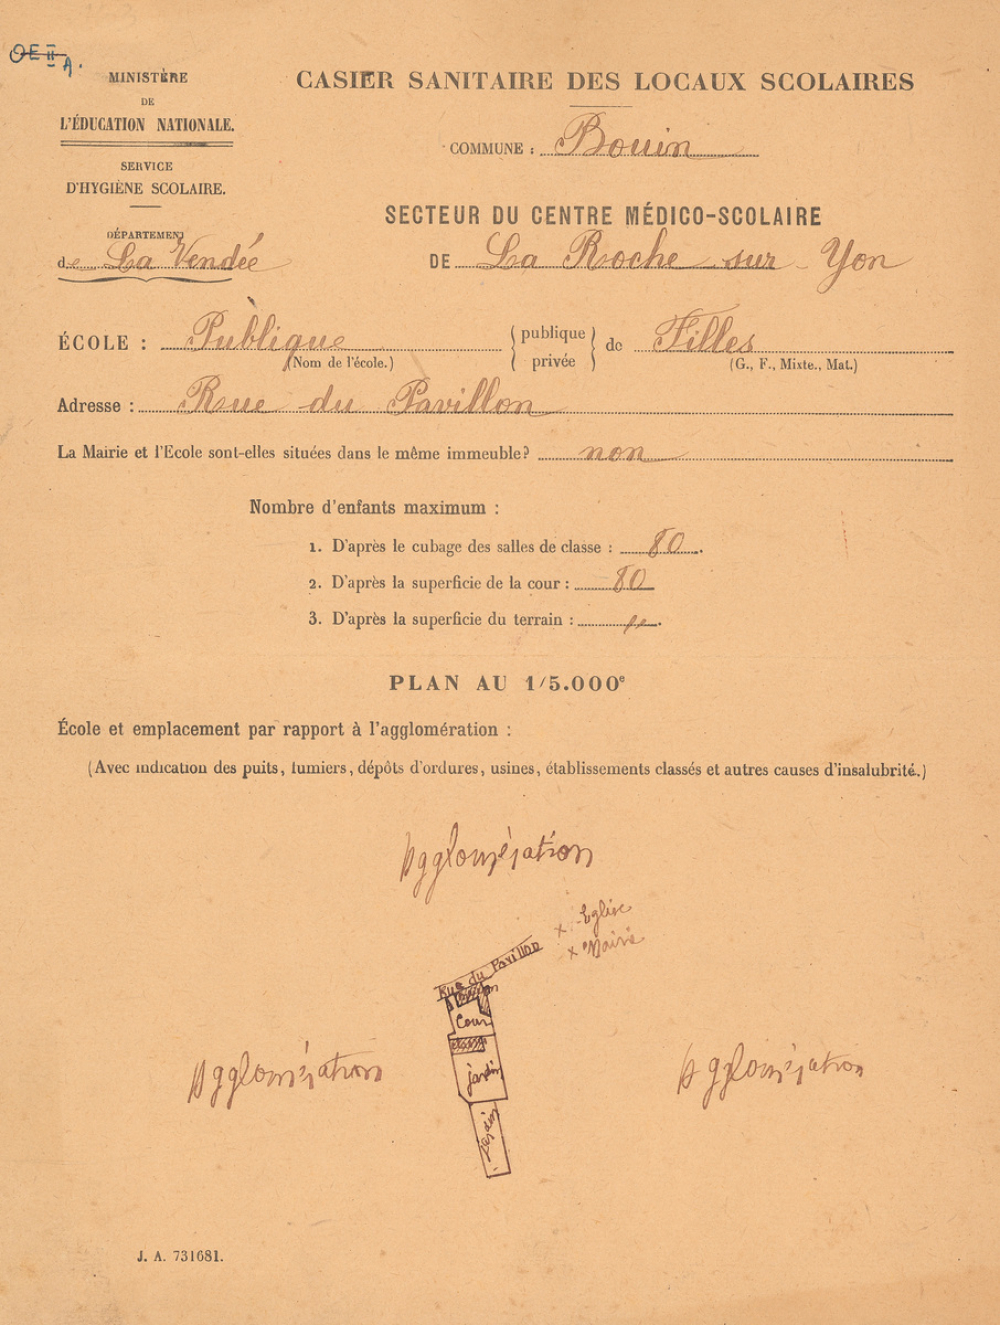 OE II A.
MINISTÈRE
DE
L'ÉDUCATION NATIONALE.
SERVICE
D'HYGIÈNE SCOLAIRE.
DÉPARTEMENT
de La Vendée
CASIER SANITAIRE DES LOCAUX SCOLAIRES
COMMUNE : Bouin
SECTEUR DU CENTRE MÉDICO-SCOLAIRE
DE La Roche sur Yon
ÉCOLE : Publique { publique } de Filles
(Nom de l'école.) { privée } (G., F., Mixte., Mat.)
Adresse : Rue du Pavillon
La Mairie et l'Ecole sont-elles situées dans le même immeuble? non
Nombre d'enfants maximum :
1. D'après le cubage des salles de classe : 80.
2. D'après la superficie de la cour : 80
3. D'après la superficie du terrain :
PLAN AU 1/5.000e
École et emplacement par rapport à l'agglomération :
(Avec indication des puits, fumiers, dépôts d'ordures, usines, établissements classés et autres causes d'insalubrité.)
Agglomération
x Eglise
x Mairie
Rue du Pavillon
Cour
jardin
Agglomération
Agglomération
J. A. 731681.